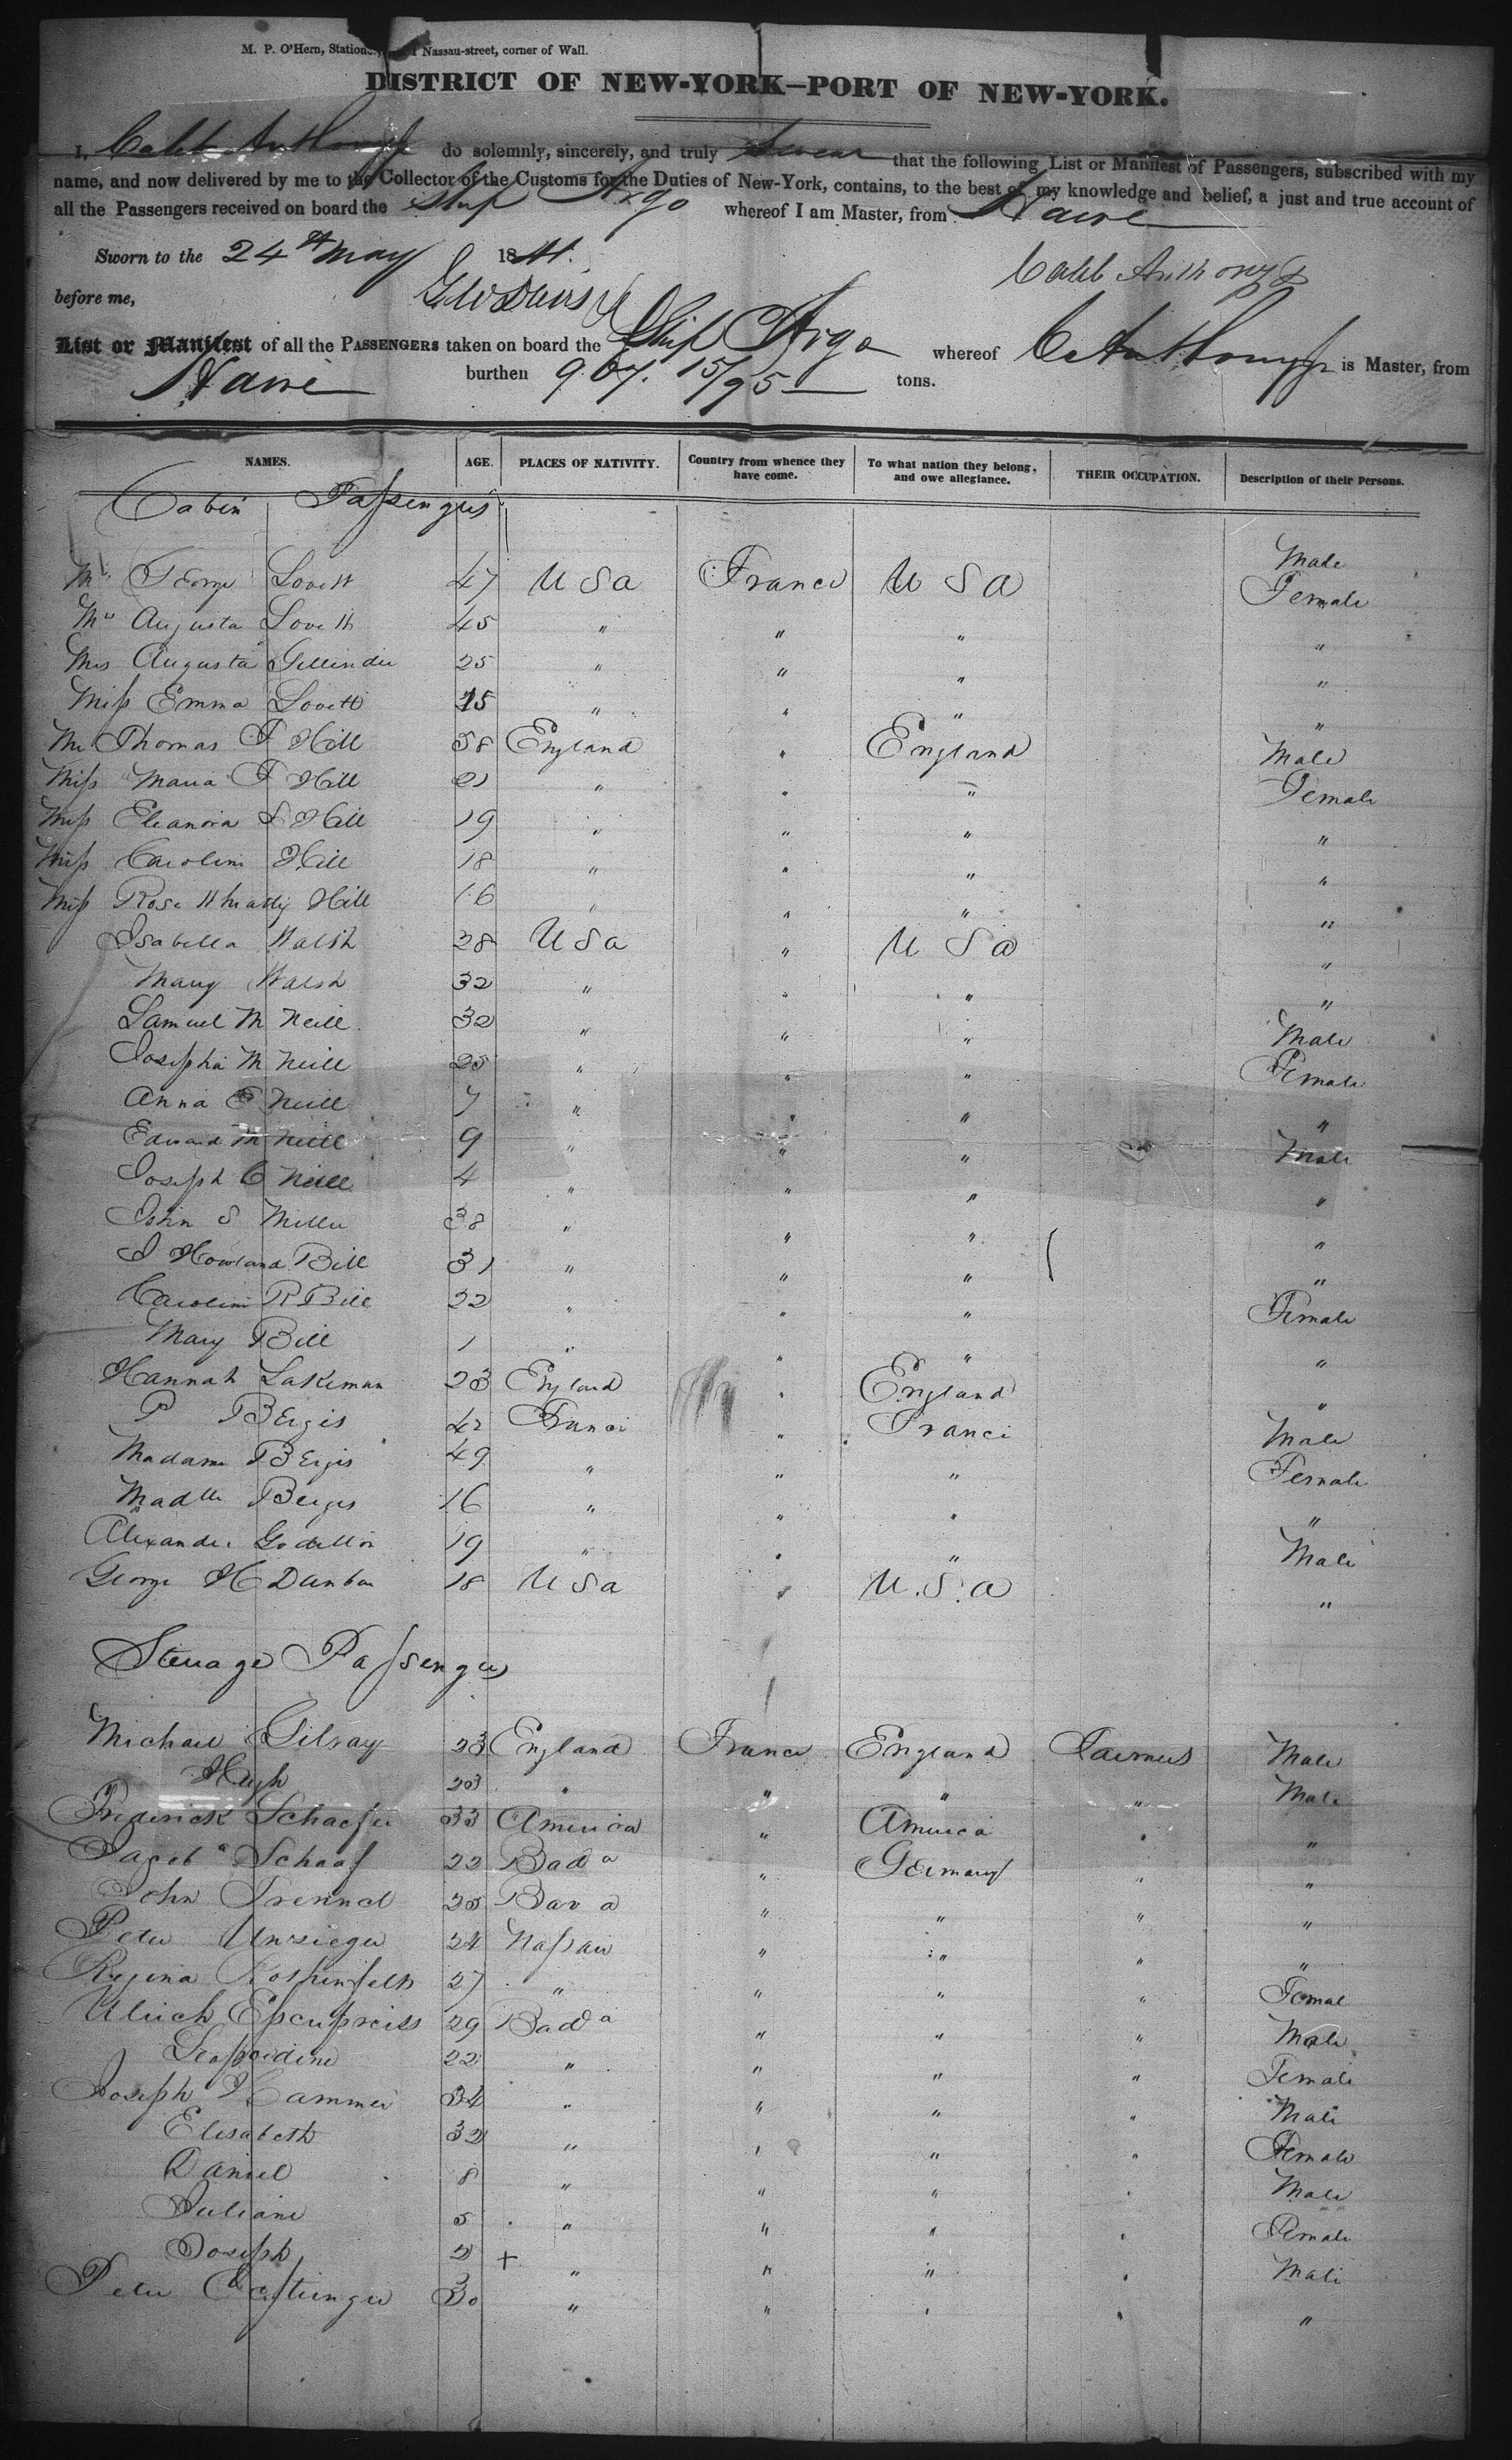 M. P. O'Hern, Stationer, Nassau-street, corner of Wall.
DISTRICT OF NEW-YORK—PORT OF NEW-YORK.
I, Caleb Anthony Jr do solemnly, sincerely, and truly Swear that the following List or Manifest of Passengers, subscribed with my
name, and now delivered by me to the Collector of the Customs for the Duties of New-York, contains, to the best of my knowledge and belief, a just and true account of
all the Passengers received on board the Ship Argo whereof I am Master, from Havre
Sworn to the 24th May 18
Caleb Anthony Jr
before me,
List or Manifest of all the PASSENGERS taken on board the Ship Argo whereof C Anthony Jr is Master, from
Havre burthen 967. 15/95 tons.
NAMES. AGE. PLACES OF NATIVITY. Country from whence they have come. To what nation they belong, and owe allegiance. THEIR OCCUPATION. Description of their Persons.
Cabin Passengers
Mr George Lovett 47 U S a France U S a Male
Mrs Augusta Lovett 45 " " " Female
Mrs Augusta Gillender 25 " " " "
Miss Emma Lovett 15 " " " "
Mr Thomas F Hill 58 England " England Male
Miss Maria F Hill 21 " " " Female
Miss Eleanora S Hill 19 " " " "
Miss Caroline Hill 18 " " " "
Miss Rose Hill 16 " " " "
Isabella Walsh 28 U S a " U S a "
Mary Walsh 32 " " " "
Samuel M Neill 32 " " " Male
Josepha M Neill 25 " " " Female
Anna E Neill 7 " " " "
Edward M Neill 9 " " " Male
Joseph C Neill 4 " " " "
John S Miller 38 " " " "
J Howland Bill 31 " " " "
Caroline R Bill 22 " " " Female
Mary Bill 1 " " " "
Hannah Lakeman 23 England " England "
P Berges 42 France " France Male
Madame Berges 49 " " " Female
Madlle Berges 16 " " " "
Alexander Godillon 19 " " " Male
George H Dunbar 18 U S a " U. S. a "
Steerage Passengers
Michael Gilray 23 England France England Farmers Male
Hugh 20 " " " " Male
Frederick Schaefer 33 America " America " "
Jacob Schaaf 22 Bad a " Germany " "
John 25 Bav a " " " "
Peter Unzieger 24 Nassau " " " "
Regina 27 " " " " Femal
Ulrich 29 Bad a " " " Male
Leopoldine 22 " " " " Female
Joseph Hammer 34 " " " " Male
Elisabeth 32 " " " " Female
Daniel 8 " " " " Male
Juliane 5 " " " " Female
Joseph 2 + " " " " Male
Peter 30 " " " " "